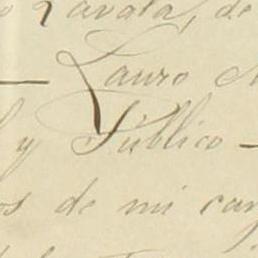 Zavala, de
Lauro
y Público
os de mi car